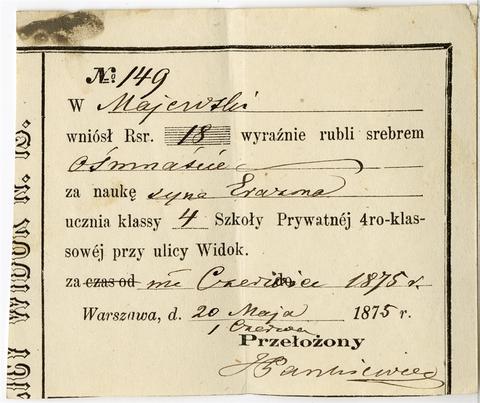 № 149
W Majewski
wniósł Rsr. 18 wyraźnie rubli srebrem
ośmnaście
za naukę syna Erazma
ucznia klassy 4 Szkoły Prywatnéj 4ro-klas-
sowéj przy ulicy Widok.
za czas od mc Czerwiec do 1875 r.
Warszawa, d. 20 Maja 1875 r.
1 Czerwca
Przełożony